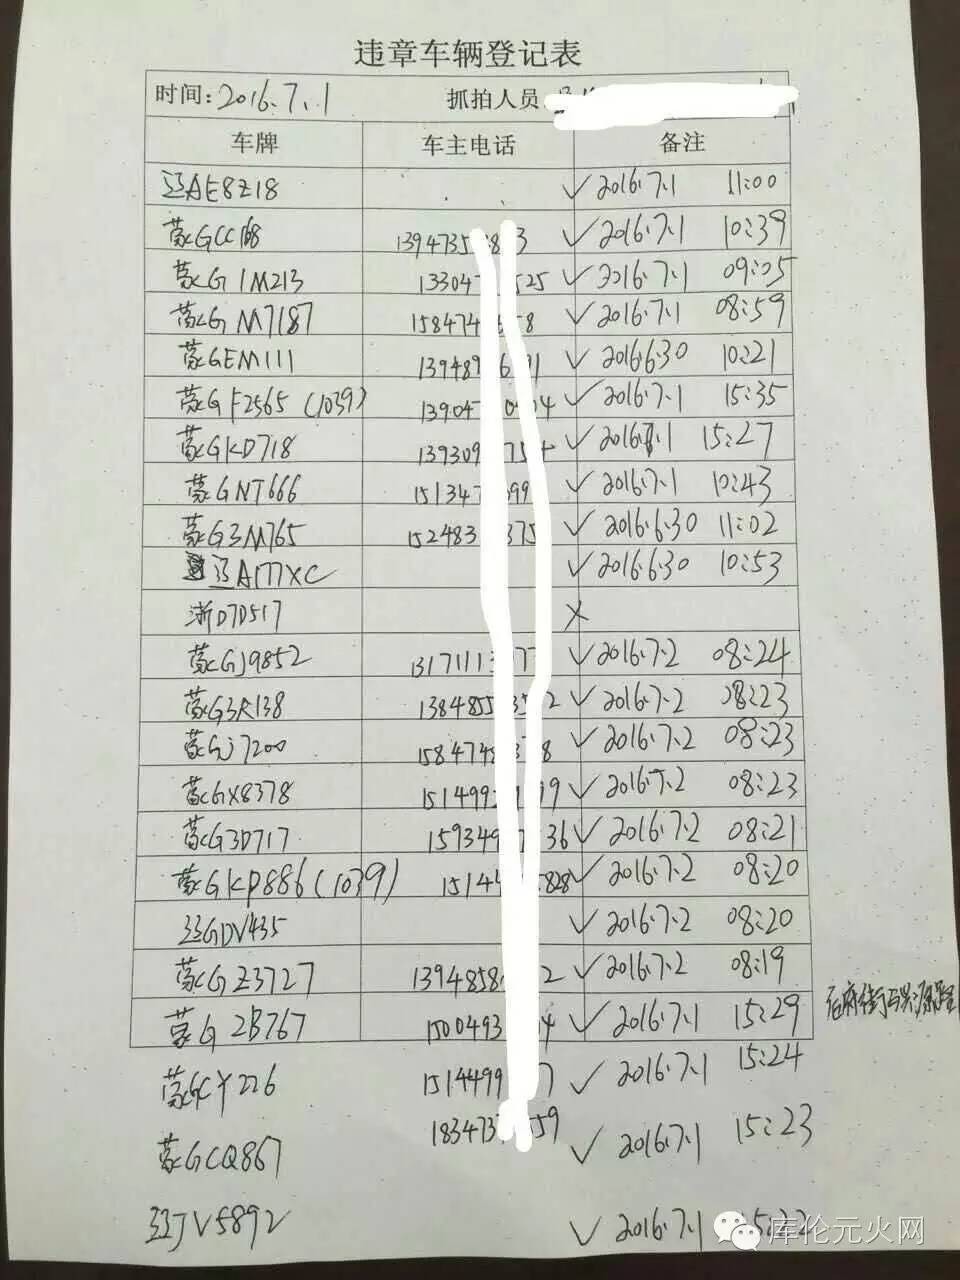 违章车辆登记表
时间: 2016.7.1 抓拍人员
车牌 车主电话 备注
辽AE8Z18 ✓ 2016.7.1 11:00
蒙GCC168 139473 ✓ 2016.7.1 10:39
蒙G1M213 13304 525 ✓ 2016.7.1 09:05
蒙GM7187 158474 8 ✓ 2016.7.1 08:59
蒙GEM111 13948 91 ✓ 2016.6.30 10:21
蒙GF2565 (1039) 13904 04 ✓ 2016.7.1 15:35
蒙GKD718 139309 ✓ 2016.7.1 15:27
蒙GNT666 15134 99 ✓ 2016.7.1 10:43
蒙G3M765 152483 375 ✓ 2016.6.30 11:02
辽A177XC ✓ 2016.6.30 10:53
浙D7D517 ×
蒙GJ9852 1317111 ✓ 2016.7.2 08:24
蒙G3R138 138485 2 ✓ 2016.7.2 08:23
蒙GJ7200 1584748 8 ✓ 2016.7.2 08:23
蒙GX8378 151499 9 ✓ 2016.7.2 08:23
蒙G3D717 15934 36 ✓ 2016.7.2 08:21
蒙GKP886 (1039) 1514 828 ✓ 2016.7.2 08:20
辽GDV435 ✓ 2016.7.2 08:20
蒙GZ3727 1394858 2 ✓ 2016.7.2 08:19
蒙G2B767 1500493 4 ✓ 2016.7.1 15:29
后府街与兴源路
蒙GCY226 1514499 7 ✓ 2016.7.1 15:24
蒙GCQ867 1834737 59 ✓ 2016.7.1 15:23
辽JV5892 ✓ 2016.7.1 15:22
库伦元火网